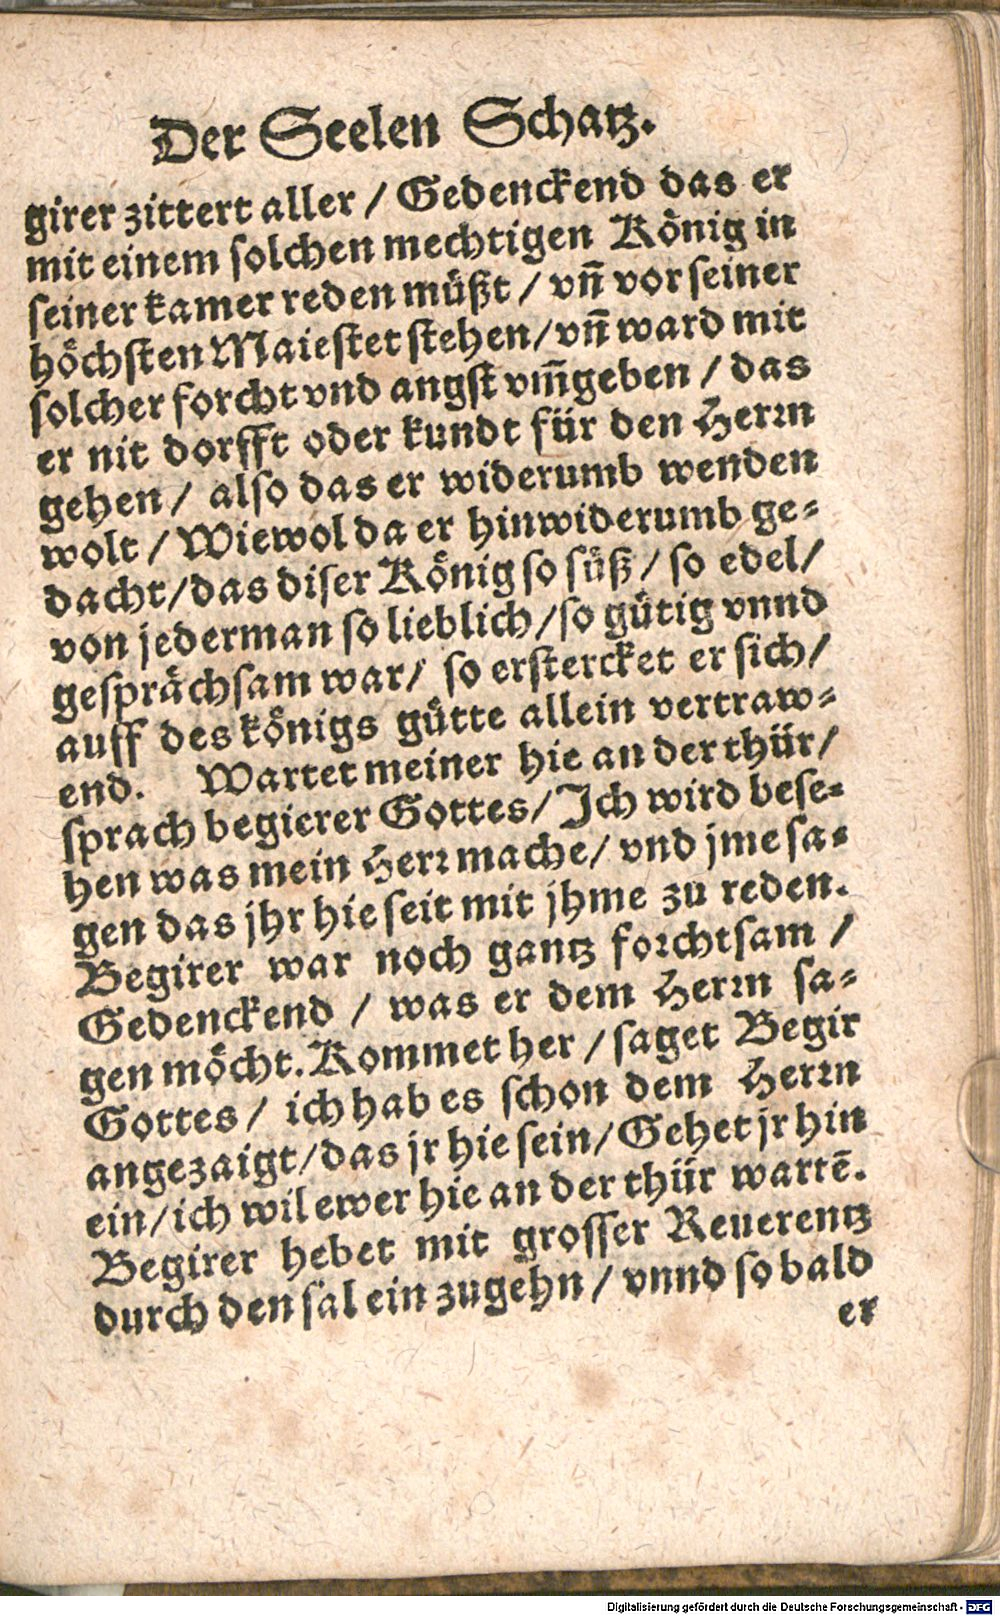 Der Seelen Schatz.
girer zittert aller / Gedenckend das er
mit einem solchen mechtigen König in
seiner kamer reden müßt / vñ vor seiner
höchsten Maiestet stehen / vñ ward mit
solcher forcht vnd angst vm̃geben / das
er nit dorfft oder kundt für den Herrn
gehen / also das er widerumb wenden
wolt / Wiewol da er hinwiderumb ge-
dacht / das diser König so süß / so edel /
von jederman so lieblich / so gütig vnnd
gesprächsam war / so erstercket er sich /
auff des königs gütte allein vertraw-
end. Wartet meiner hie an der thür /
sprach begierer Gottes / Ich wird bese-
hen was mein Herr mache / vnd jme sa-
gen das jhr hie seit mit jhme zu reden.
Begirer war noch gantz forchtsam /
Gedenckend / was er dem Herrn sa-
gen möcht. Kommet her / saget Begir
Gottes / ich hab es schon dem Herrn
angezaigt / das jr hie sein / Gehet jr hin
ein / ich wil ewer hie an der thür wartē.
Begirer hebet mit grosser Reuerentz
durch den sal ein zugehn / vnnd so bald
er
Digitalisierung gefördert durch die Deutsche Forschungsgemeinschaft - DFG